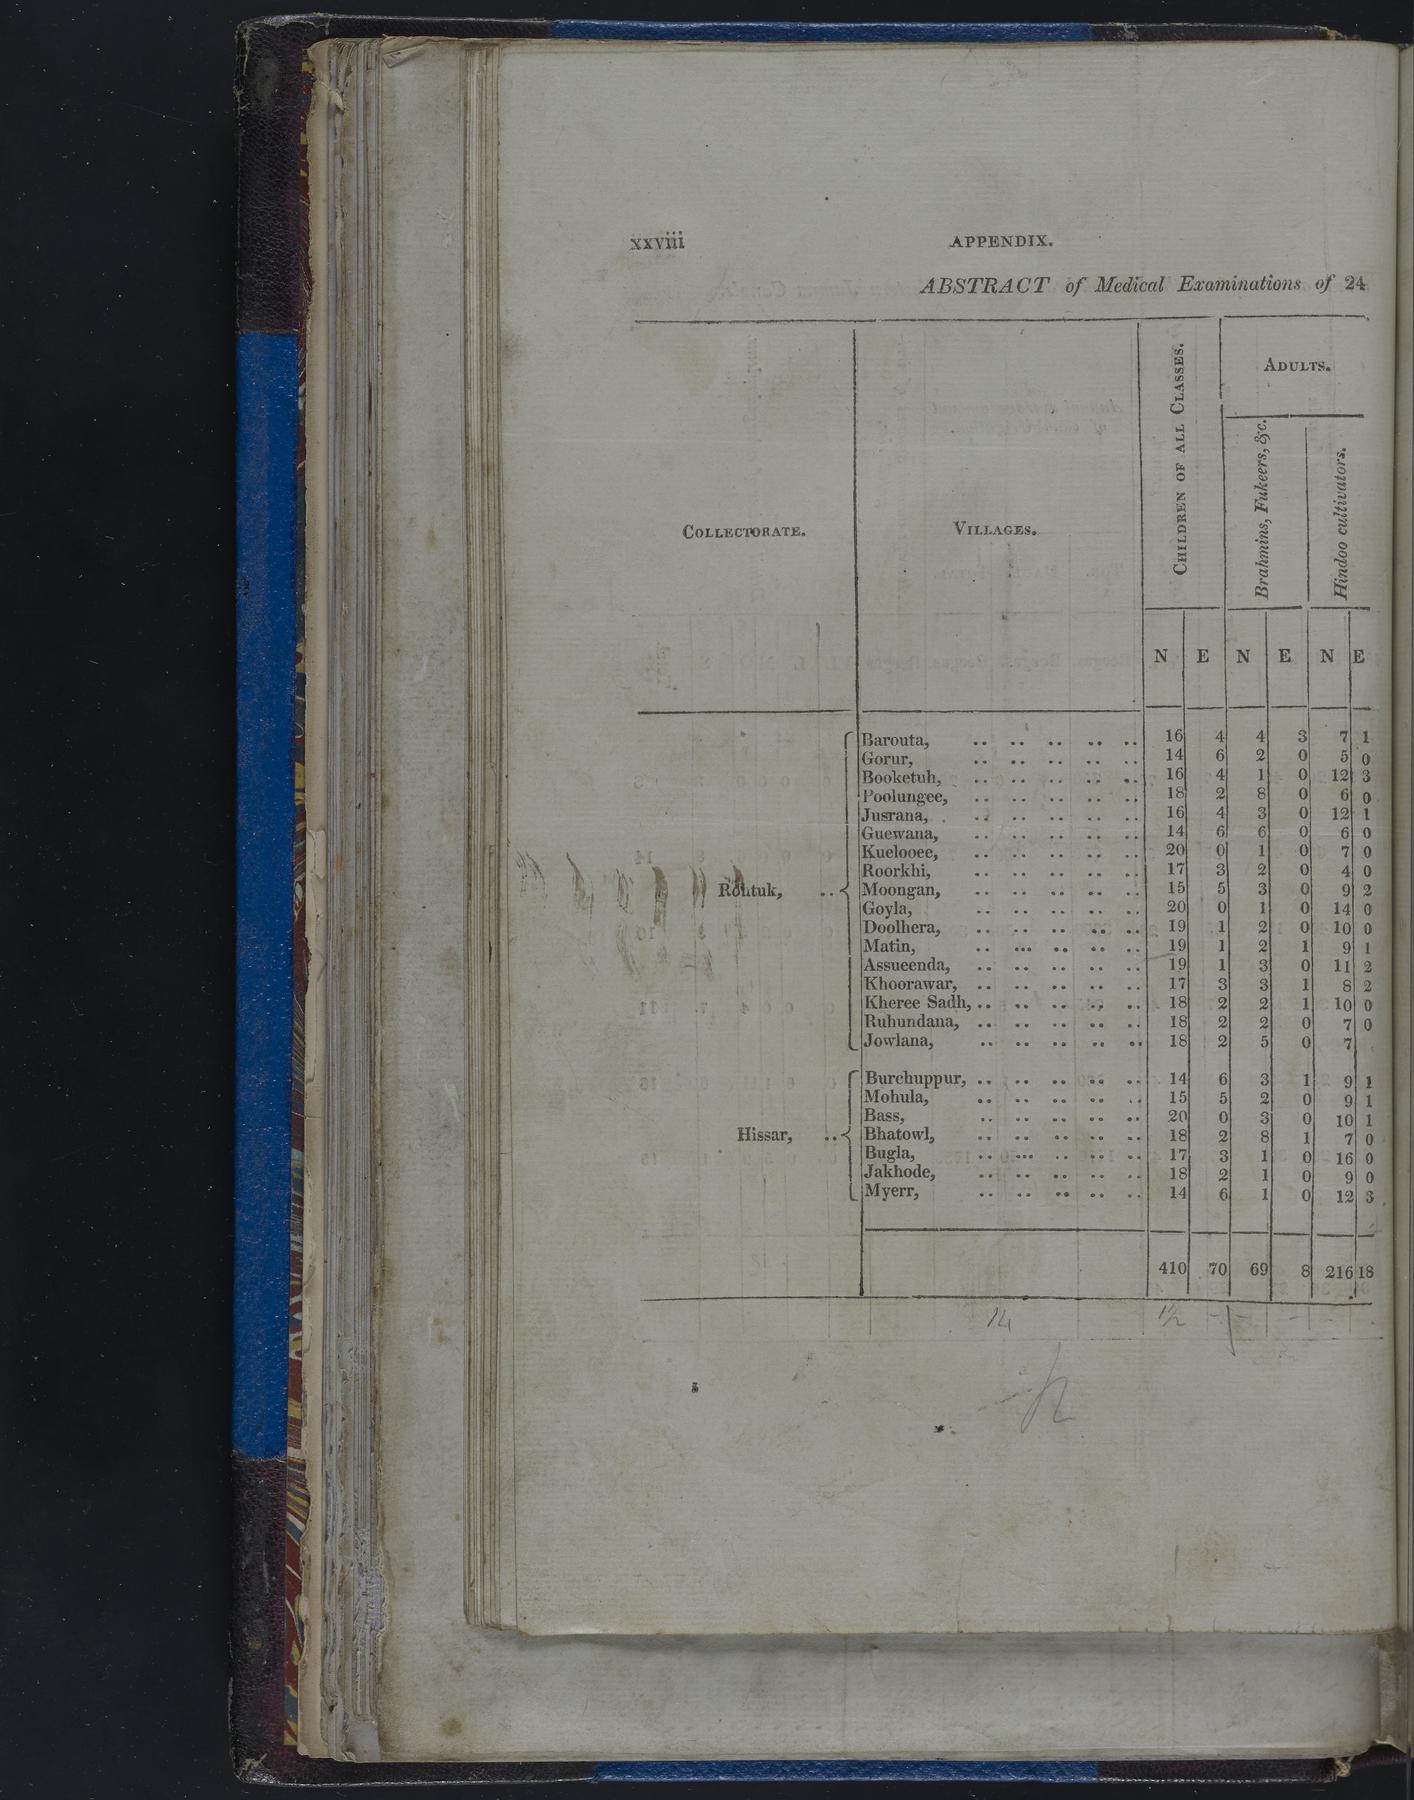 xxviii APPENDIX.
ABSTRACT of Medical Examinations of 24
COLLECTORATE. VILLAGES. CHILDREN OF ALL CLASSES. ADULTS.
Brahmins, Fukeers, &c. Hindoo cultivators.
N E N E N E
Barouta, .. .. .. .. .. 16 4 4 3 7 1
Gorur, .. .. .. .. .. 14 6 2 0 5 0
Booketuh, .. .. .. .. .. 16 4 1 0 12 3
Poolungee, .. .. .. .. .. 18 2 8 0 6 0
Jusrana, .. .. .. .. .. 16 4 3 0 12 1
Guewana, .. .. .. .. .. 14 6 6 0 6 0
Kuelooee, .. .. .. .. .. 20 0 1 0 7 0
Roorkhi, .. .. .. .. .. 17 3 2 0 4 0
Rohtuk, .. Moongan, .. .. .. .. .. 15 5 3 0 9 2
Goyla, .. .. .. .. .. 20 0 1 0 14 0
Doolhera, .. .. .. .. .. 19 1 2 0 10 0
Matin, .. ... .. .. .. 19 1 2 1 9 1
Assueenda, .. .. .. .. .. 19 1 3 0 11 2
Khoorawar, .. .. .. .. .. 17 3 3 1 8 2
Kheree Sadh, .. .. .. .. .. 18 2 2 1 10 0
Ruhundana, .. .. .. .. .. 18 2 2 0 7 0
Jowlana, .. .. .. .. .. 18 2 5 0 7
Burchuppur, .. .. .. .. .. 14 6 3 1 9 1
Mohula, .. .. .. .. .. 15 5 2 0 9 1
Bass, .. .. .. .. .. 20 0 3 0 10 1
Hissar, .. Bhatowl, .. .. .. .. .. 18 2 8 1 7 0
Bugla, .. ... .. .. .. 17 3 1 0 16 0
Jakhode, .. .. .. .. .. 18 2 1 0 9 0
Myerr, .. .. .. .. .. 14 6 1 0 12 3
410 70 69 8 216 18